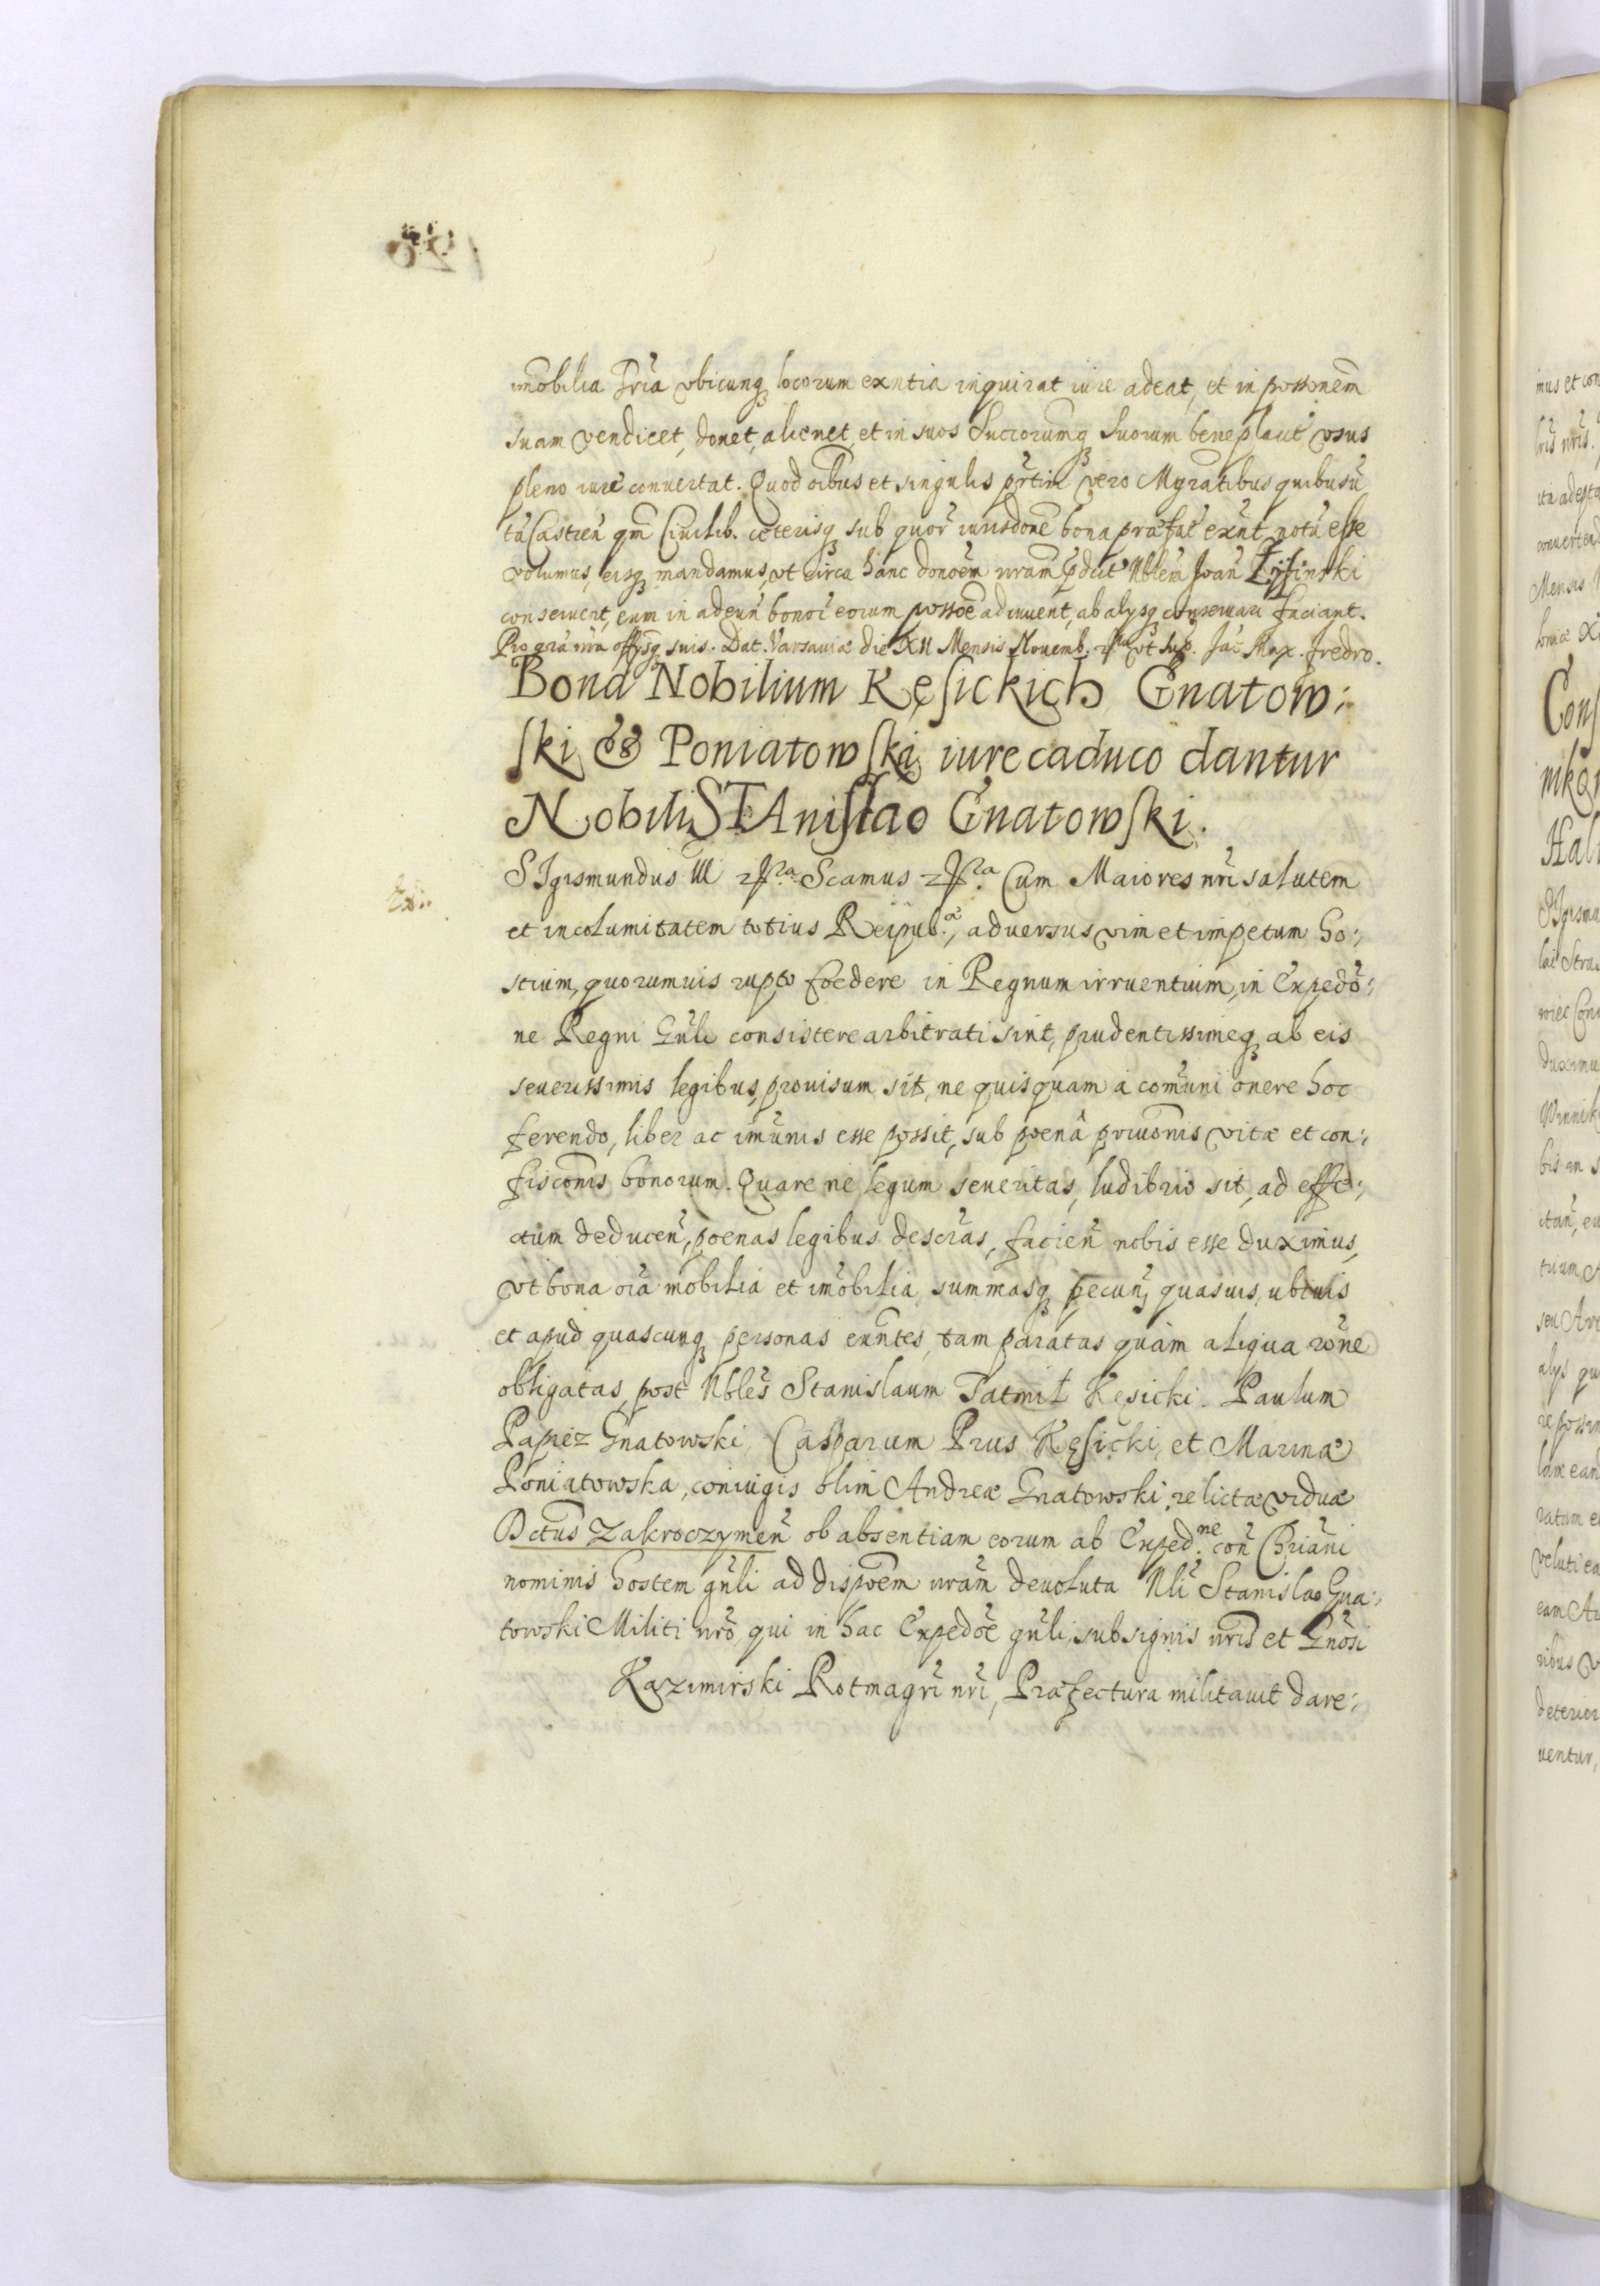 imobilia Pria ubicunq locorum exntia inquirat iure adeat, et in possonem
suam vendicet, donet, alienet, et in suos Succorumq suorum beneplacit usus
pleno iure convertat. Quod oibus et singulis prtim vero Mgratibus quibusu
tu Castren qm Civilib. ceterisq sub quor iurisdone bona praefat exnt notu esse
volumus, eisq mandamus, ut circa hanc donoem nram pdict Nblem Joan
conservent, eum in adeun bonor eorum possoe adiuvent, ab alysq conservari faciant.
Pro gra nra offysq suis. Dat. Varsaviae die XII Mensis Novemb. ut sup. Jac Max. Fredro.
Bona Nobilium Kęsickich Gnatow:
ski & Poniatowski iure caduco dantur
Nobili STAnislao Gnatowski.
SIgismundus III Scamus Cum Maiores nri salutem
et incolumitatem totius Reipub.ae, adversus vim et impetum ho:
stium, quorumvis rupto foedere in Regnum irruentium, in Expedo:
ne Regni Gnli consistere arbitrati sint, prudentissimeq ab eis
severissimis legibus, provisum sit, ne quisquam à comuni onere hoc
ferendo, liber ac imunis esse possit, sub poenâ privonis vitae et con:
fisconis bonorum. Quare ne legum severitas, ludibrio sit, ad effe:
ctum deducen, poenas legibus descras, facien nobis esse duximus,
ut bona oia mobilia et imobilia, summasq pecun, quasvis, ubivis
et apud quascunq personas exntes, tam paratas quàm aliqua rone
obligatas, post Nbles Stanislaum Tatmił Kęsicki. Paulum
Papież Gnatowski, Casparum Prus Kęsicki, et Marinae
Poniatowska, coniugis olim Andreae Gnatowski, relictae viduae
Dctus Zakroczymen ob absentiam eorum ab Exped.ne con Chriani
nominis hostem gnli ad dispoem nram devoluta Nli Stanislao Gna:
towski Militi nro, qui in hac Expedoe gnli, sub signis nris et Gnosi
Kazimirski Rotmagri nri, Praefectura militavit dare: